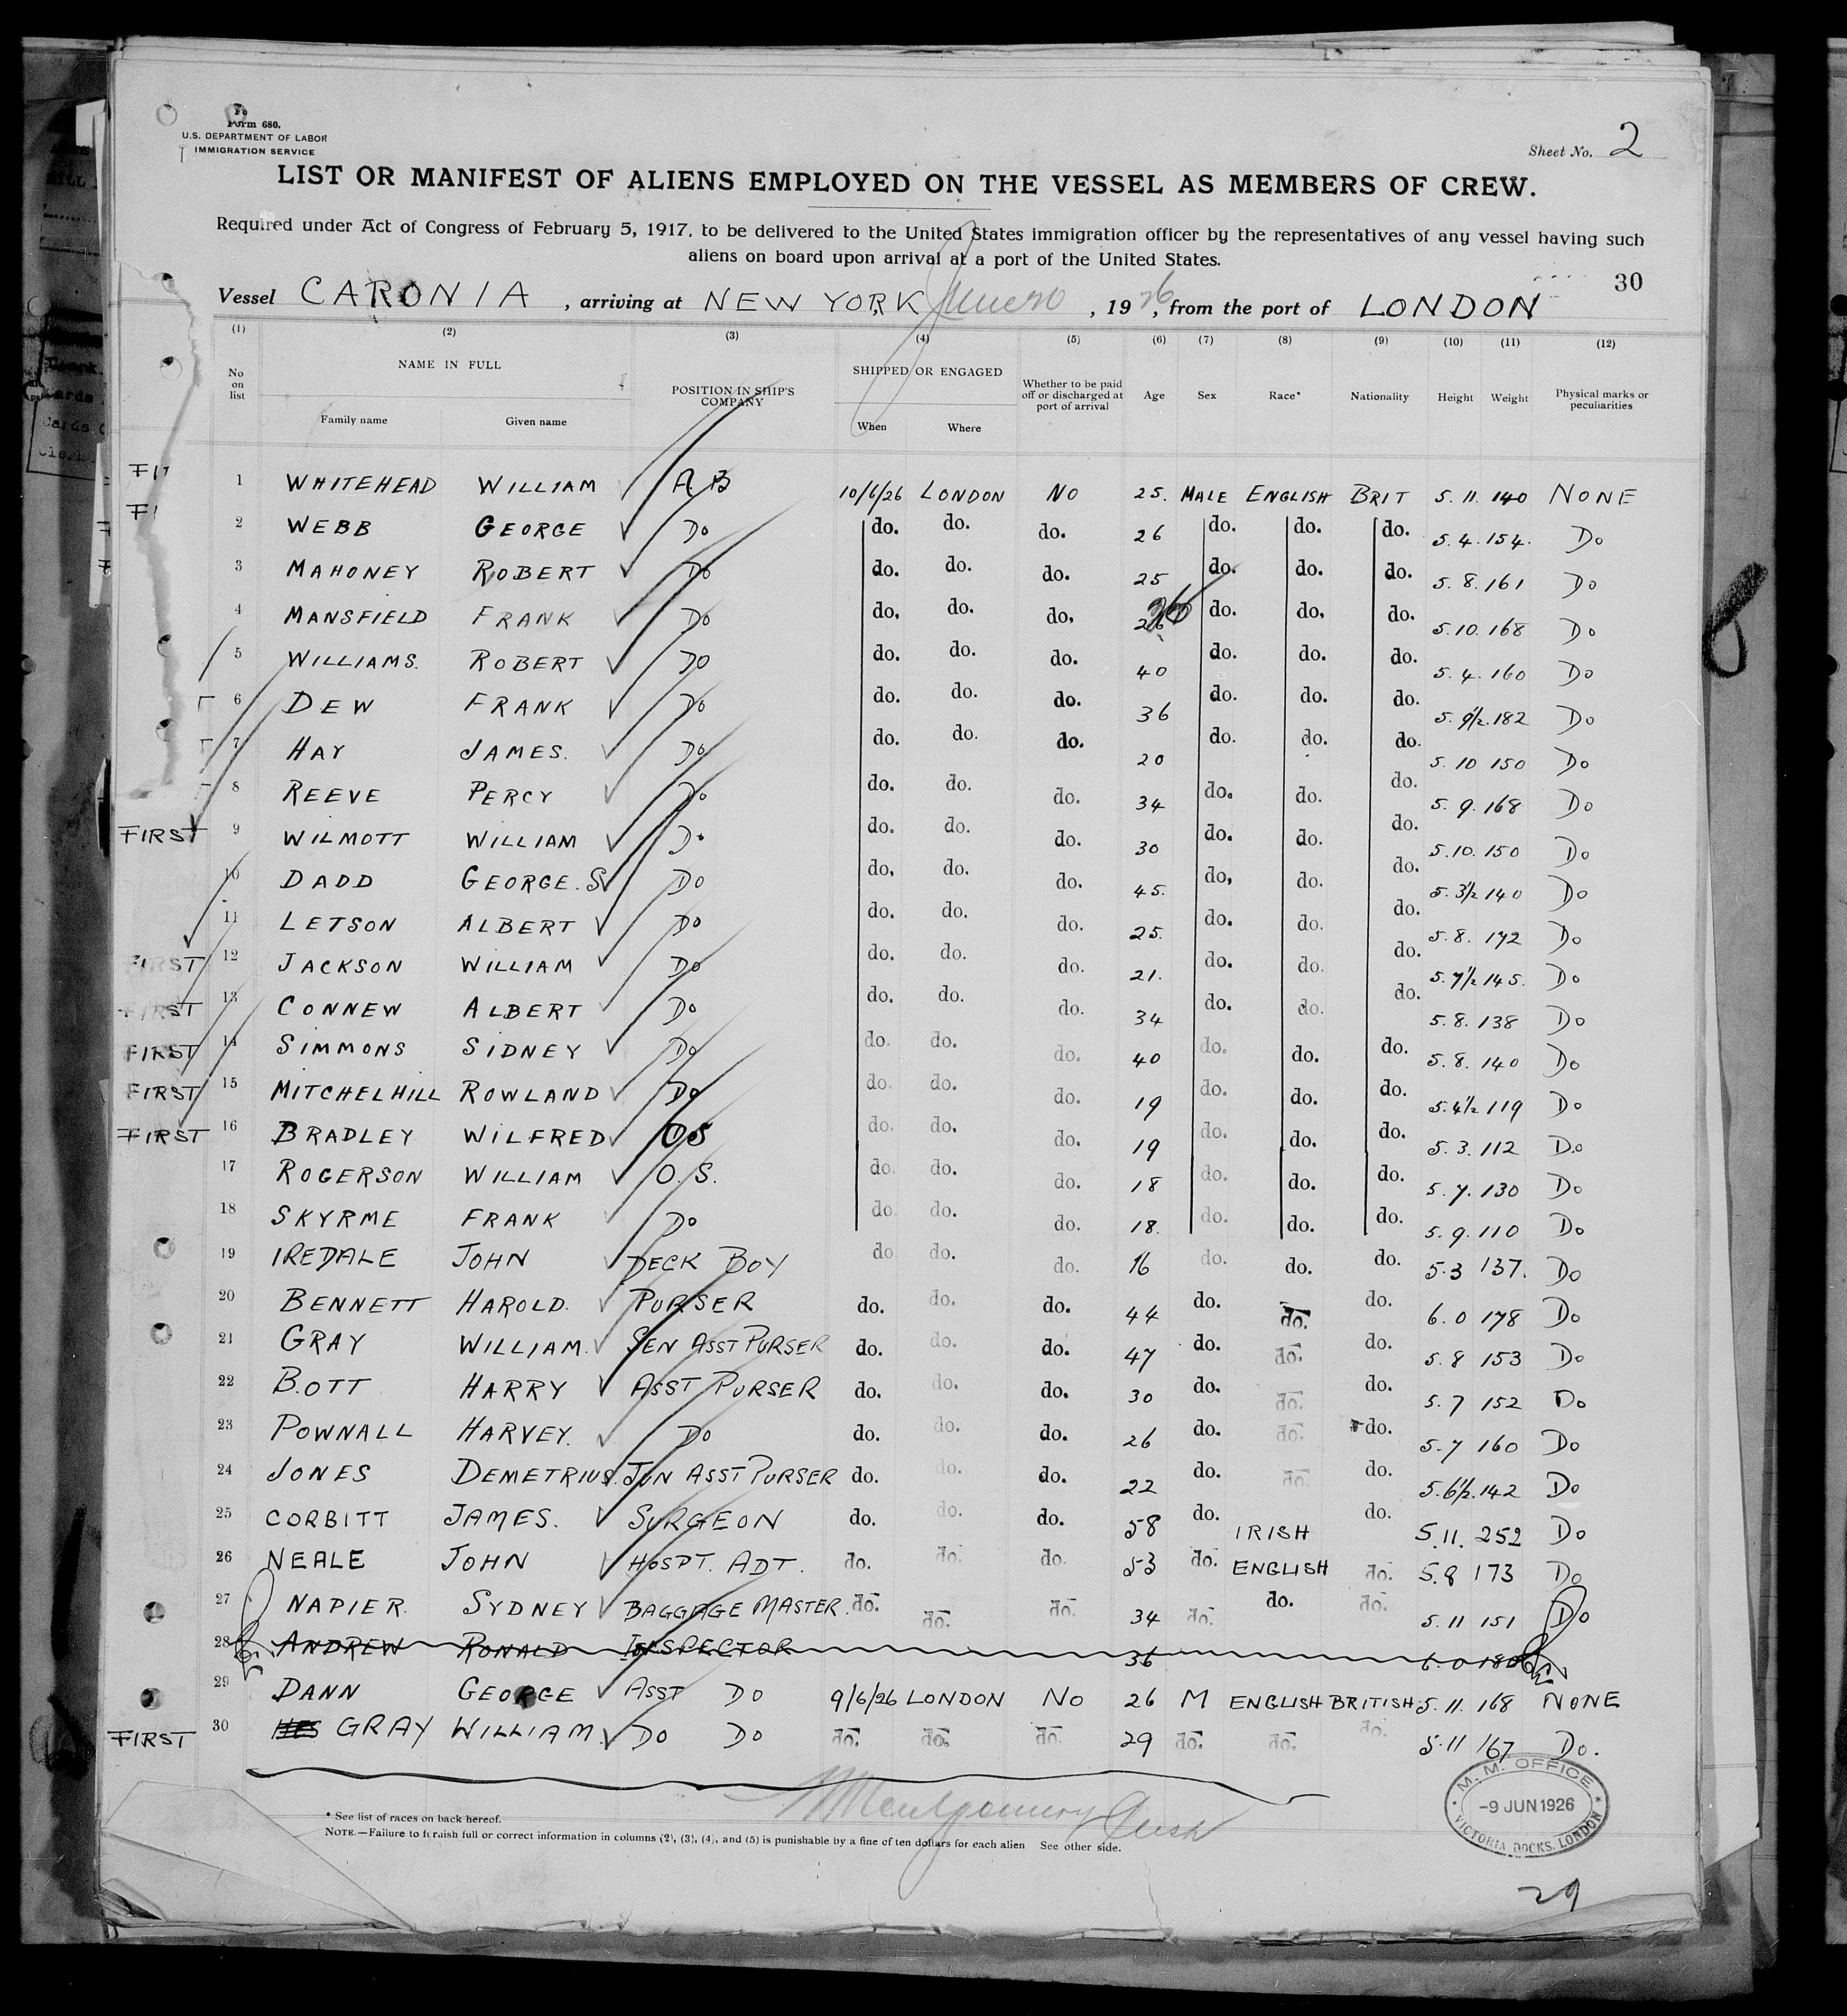 Form 680.
U.S. DEPARTMENT OF LABOR
IMMIGRATION SERVICE
Sheet No. 2
LIST OR MANIFEST OF ALIENS EMPLOYED ON THE VESSEL AS MEMBERS OF CREW.
Required under Act of Congress of February 5, 1917, to be delivered to the United States immigration officer by the representatives of any vessel having such
aliens on board upon arrival at a port of the United States.
30
Vessel CARONIA, arriving at NEW YORK, June 20, 1926, from the port of LONDON
(1) (2) (3) (4) (5) (6) (7) (8) (9) (10) (11) (12)
No on list NAME IN FULL Family name Given name POSITION IN SHIP'S COMPANY SHIPPED OR ENGAGED When Where Whether to be paid off or discharged at port of arrival Age Sex Race* Nationality Height Weight Physical marks or peculiarities
1 WHITEHEAD WILLIAM A B 10/6/26 LONDON NO 25. MALE ENGLISH BRIT 5. 11. 140 NONE
2 WEBB GEORGE Do do. do. do. 26 do. do. do. 5. 4. 154. Do
3 MAHONEY ROBERT Do do. do. do. 25 do. do. do. 5. 8. 161 Do
4 MANSFIELD FRANK Do do. do. do. 26 do. do. do. 5. 10. 168 Do
5 WILLIAMS. ROBERT DO do. do. do. 40 do. do. do. 5. 4. 160 Do
6 DEW FRANK Do do. do. do. 36 do. do. do. 5. 9½. 182 Do
7 HAY JAMES. Do do. do. do. 20 do. do. do. 5. 10 150 Do
8 REEVE PERCY Do do. do. do. 34 do. do. do. 5. 9. 168 Do
FIRST 9 WILMOTT WILLIAM Do do. do. do. 30 do. do. do. 5. 10. 150 Do
10 DADD GEORGE. S Do do. do. do. 45. do. do. do. 5. 3½ 140 Do
11 LETSON ALBERT Do do. do. do. 25. do. do. do. 5. 8. 172 Do
FIRST 12 JACKSON WILLIAM Do do. do. do. 21. do. do. do. 5. 7½ 145. Do
FIRST 13 CONNEW ALBERT Do do. do. do. 34 do. do. do. 5. 8. 138 Do
FIRST 14 SIMMONS SIDNEY Do do. do. do. 40 do. do. do. 5. 8. 140 Do
FIRST 15 MITCHELHILL ROWLAND Do do. do. do. 19 do. do. do. 5. 4½ 119 Do
FIRST 16 BRADLEY WILFRED OS do. do. do. 19 do. do. do. 5. 3. 112 Do
17 ROGERSON WILLIAM O. S. do. do. do. 18 do. do. do. 5. 7. 130 Do
18 SKYRME FRANK Do do. do. do. 18. do. do. do. 5. 9. 110 Do
19 IREDALE JOHN DECK BOY do. do. do. 16 do. do. do. 5.3 137. Do
20 BENNETT HAROLD. PURSER do. do. do. 44 do. do. do. 6. 0 178 Do
21 GRAY WILLIAM. SEN ASST PURSER do. do. do. 47 do. do. do. 5. 8 153 Do
22 BOTT HARRY ASST PURSER do. do. do. 30 do. do. do. 5. 7 152 Do
23 POWNALL HARVEY. Do do. do. do. 26 do. do. do. 5.7 160 Do
24 JONES DEMETRIUS. JUN ASST PURSER do. do. do. 22 do. do. do. 5.6½. 142 Do
25 CORBITT JAMES. SURGEON do. do. do. 58 do. IRISH do. 5. 11. 252 Do
26 NEALE JOHN HOSPT. ADT. do. do. do. 53 do. ENGLISH do. 5.8 173 Do
27 NAPIER. SYDNEY BAGGAGE MASTER. do. do. do. 34 do. do. do. 5. 11 151 Do
28 ANDREW RONALD INSPECTOR 36 6. 0 180
29 DANN GEORGE ASST DO 9/6/26 LONDON NO 26 M ENGLISH BRITISH 5. 11. 168 NONE
FIRST 30 GRAY WILLIAM. DO DO do. do. do. 29 do. do. do. 5.11 167 Do.
* See list of races on back hereof.
NOTE.—Failure to furnish full or correct information in columns (2), (3), (4), and (5) is punishable by a fine of ten dollars for each alien See other side.
M. M. OFFICE
-9 JUN 1926
VICTORIA DOCKS, LONDON
29